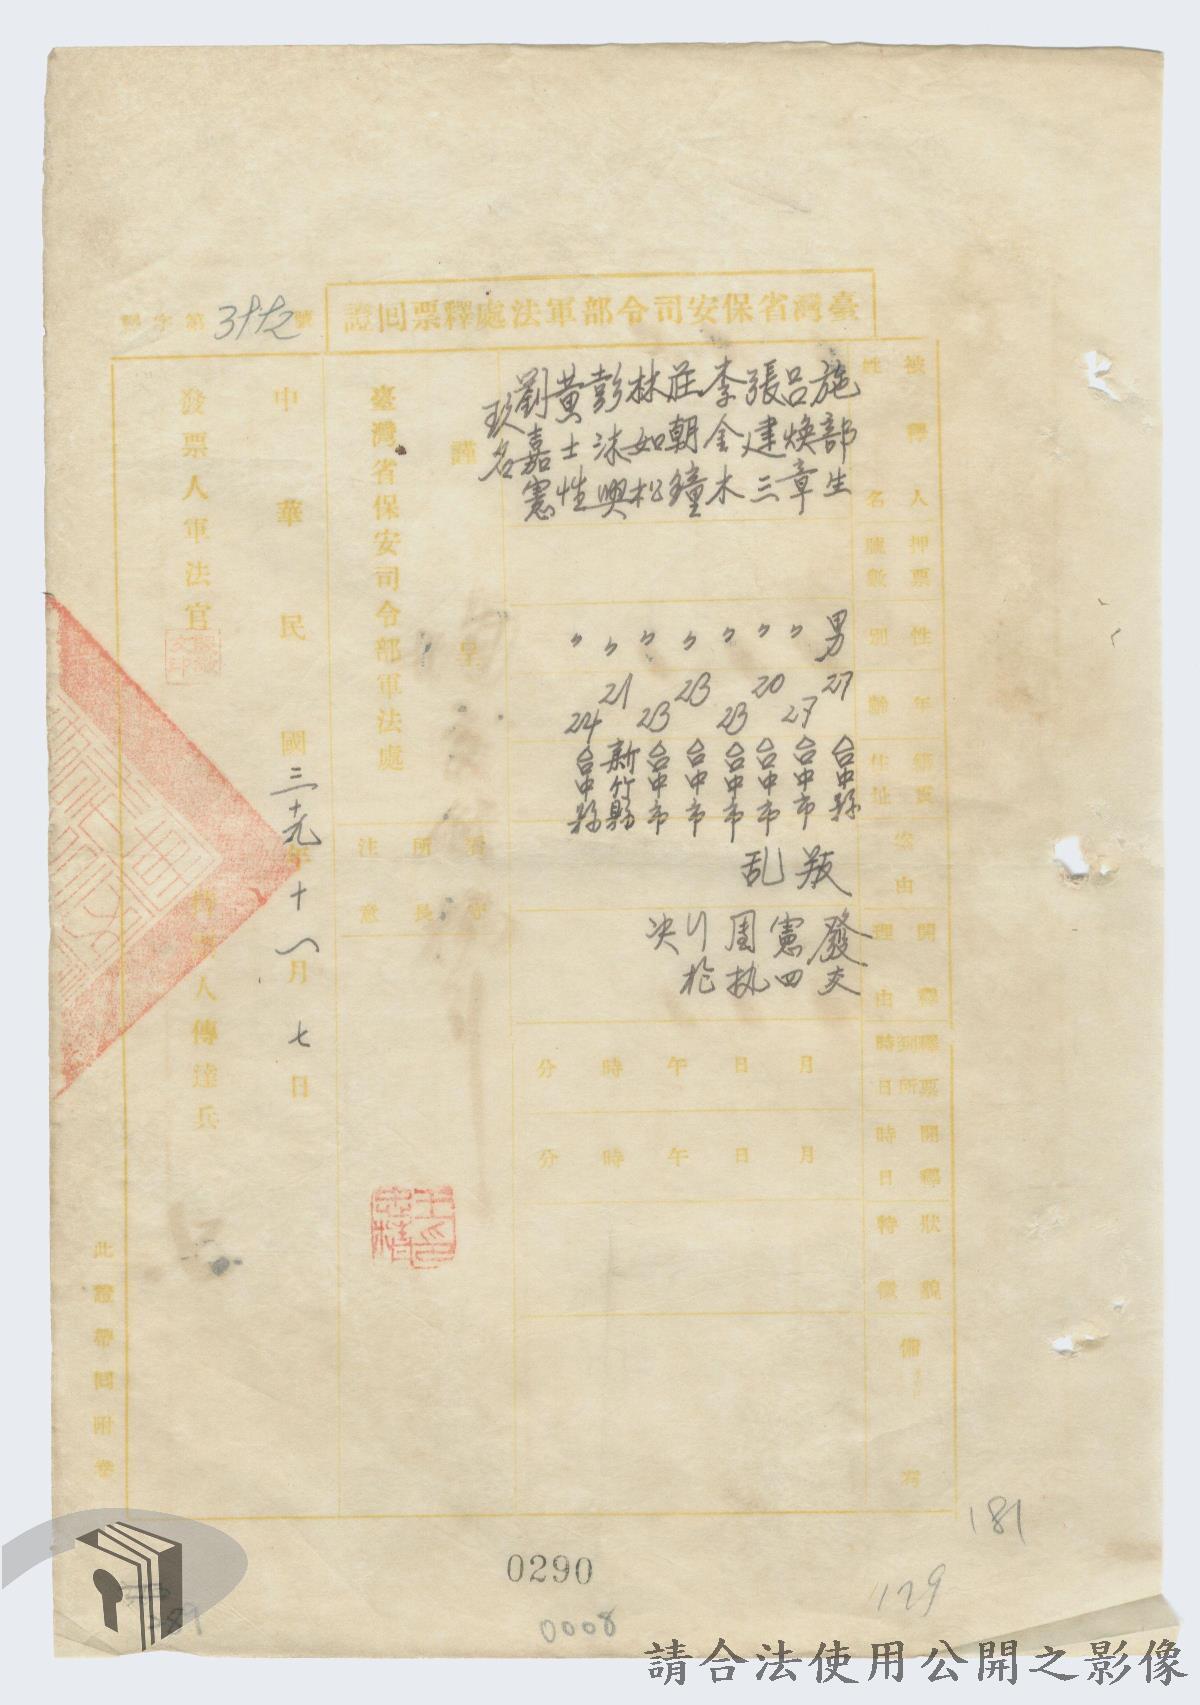 臺灣省保安司令部軍法處釋票回證
字第3992號
被釋人姓名
施部生
呂煥章
張建三
李金木
莊朝鐘
林如松
彭沐興
黃士性
劉嘉憲
玖名
押票號數
性別
男 〃 〃 〃 〃 〃 〃 〃
年齡
27 27 20 23 23 23 21 24
籍貫住址
台中縣
台中市
台中市
台中市
台中市
台中市
新竹縣
台中縣
案由
叛乱
開釋理由
發交
憲四
團执
行枪
决
釋票到所時日
月 日 午 時 分
開釋時日
月 日 午 時 分
狀貌特徵
備考
謹呈
臺灣省保安司令部軍法處
看守所所長
注意
中華民國三十九年十一月七日
發票人軍法官
釋票人傳達兵
此證帶回附卷
王忠楷印
181
129
0290
0008
請合法使用公開之影像